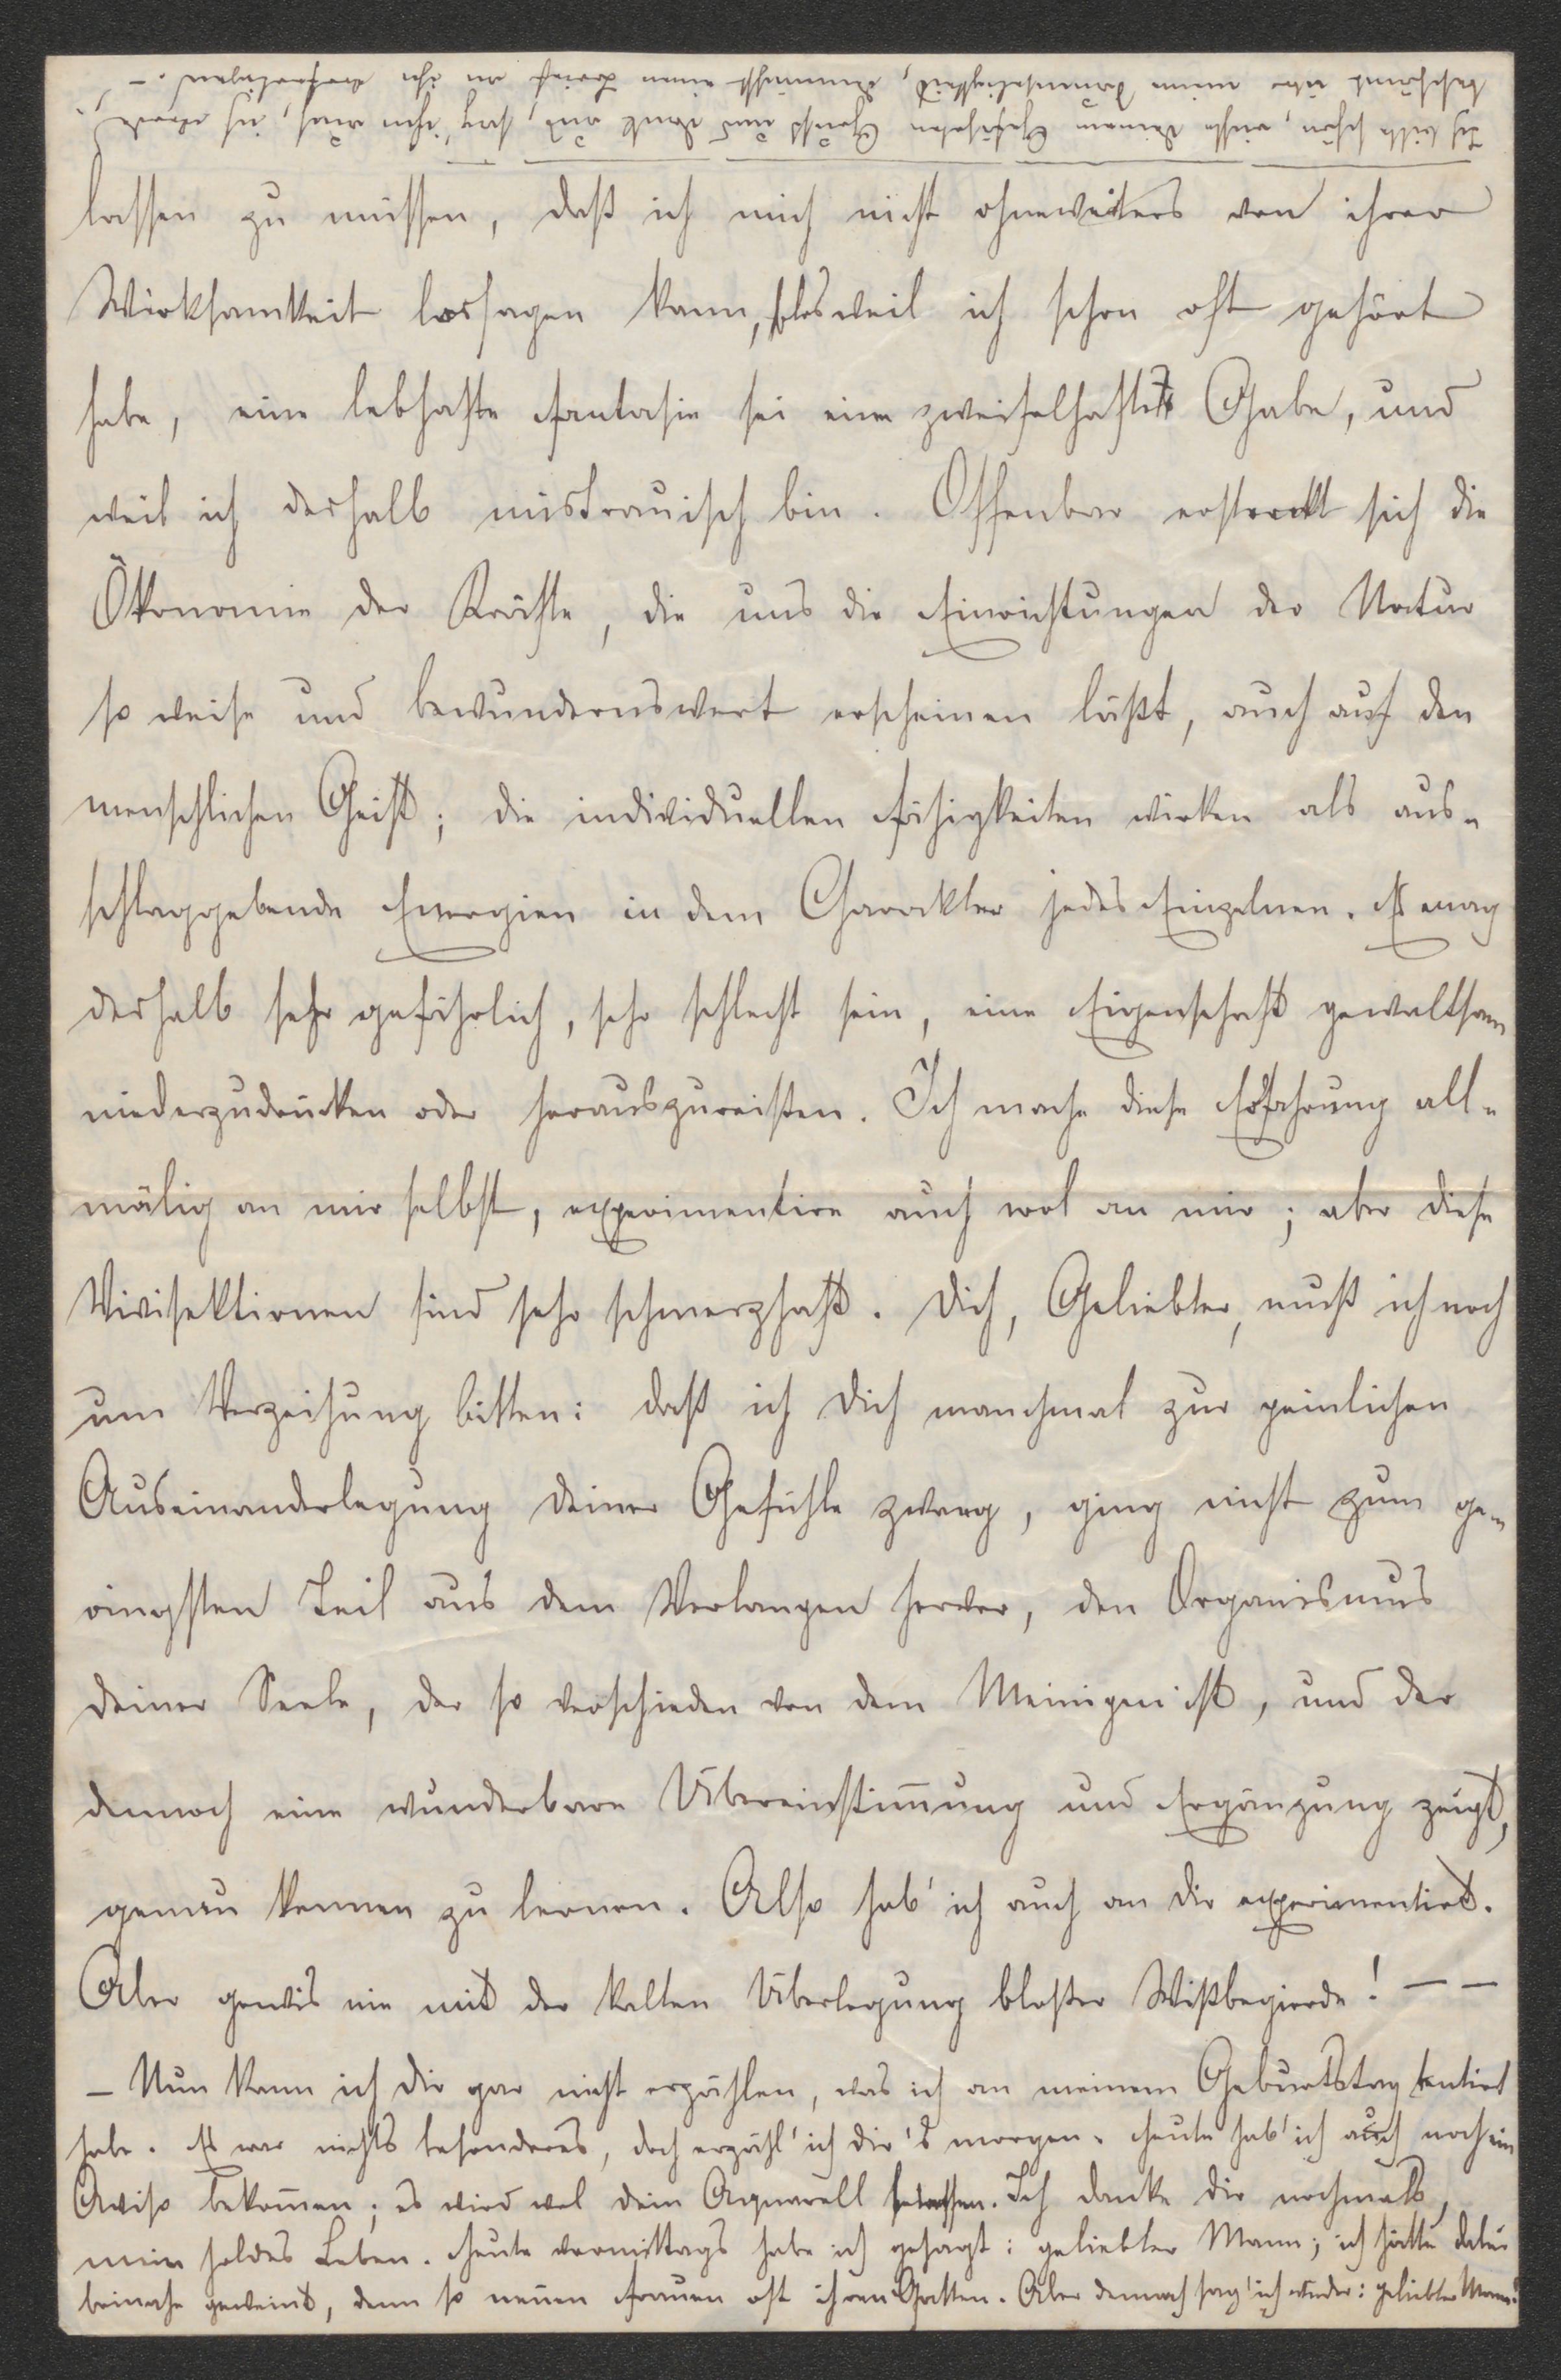 lassen zu müssen, daß ich mich nicht ohneweiters von ihrer
Wirksamkeit lossagen kann, blos weil ich schon oft gehört
habe, eine lebhafte Fantasie sei eine zweifelhafte Gabe, und
weil ich deshalb mistrauisch bin. Offenbar erstreckt sich die
Ökonomie der Kräfte, die uns die Einrichtungen der Natur
so weise und bewundernswert erscheinen läßt, auch auf den
menschlichen Geist; die individuellen Fähigkeiten wirken als aus-
schlaggebende Energien in dem Charakter jedes Einzelnen. Es mag
deshalb sehr gefährlich, sehr schlecht sein, eine Eigenschaft gewaltsam
niederzudrücken oder herauszureißen. Ich mache diese Erfahrung all-
mälig an mir selbst, experimentire auch wol an mir; aber diese
Vivisektionen sind sehr schmerzhaft. Dich, Geliebter, muß ich noch
um Verzeihung bitten: daß ich Dich manchmal zur peinlichen
Auseinanderlegung Deiner Gefühle zwang, ging nicht zum ge-
ringsten Teil aus dem Verlangen hervor, den Organismus
Deiner Seele, der so verschieden von dem Meinigen ist, und der
dennoch eine wunderbare Übereinstim̄ung und Ergänzung zeigt,
genau kennen zu lernen. Also hab' ich auch an Dir experimentirt.
Aber gewis nie mit der kalten Überlegung bloßer Wißbegierde! — —
– Nun kann ich Dir gar nicht erzählen, was ich an meinem Geburtstag tentirt
habe. Es war nichts besonderes, doch erzähl' ich Dir's morgen. Heute hab' ich auch noch ein
Aviso bekom̄en; es wird wol Dein Aquarell betreffen. Ich danke Dir nochmals,
mein holdes Leben. Heute vormittags habe ich gesagt: geliebter Mann; ich hätte dabei
beinahe geweint, denn so nen̄en Frauen oft ihren Gatten. Aber dennoch sag' ich wieder: geliebter Mann!
Ich bitte schön, richte Deinem Gefährten Gruß und Dank aus, sag' ihm auch, ich
beschämt über meine Saumseligkeit, demnächst einen Brief an ihn